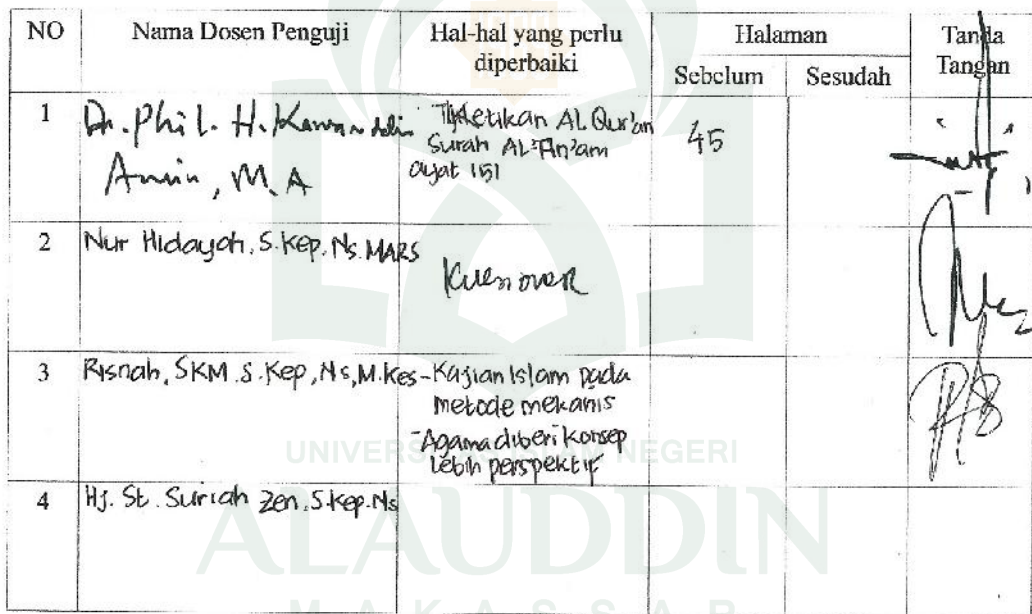 NO Nama Dosen Penguji Hal-hal yang perlu diperbaiki Halaman Tanda Tangan
Sebelum Sesudah
1 Dr. Phil. H. Kamaruddin Amin, M.A
Surah AL-An'am
ayat 151
45
2 Nur Hidayah, S.Kep, Ns. MARS
3 Risnah, SKM. S.Kep, Ns, M.Kes
- Kajian Islam pada
metode mekanis
- Agama diberi konsep
lebih perspektif
4 Hj. St. Suriah Zen, S.Kep, Ns
UNIVERSITAS ISLAM NEGERI
ALAUDDIN
MAKASSAR